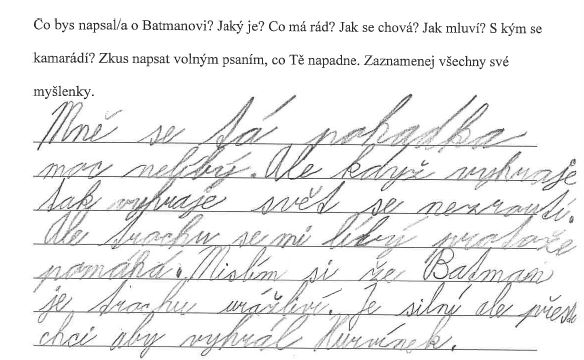 Co bys napsal/a o Batmanovi? Jaký je? Co má rád? Jak se chová? Jak mluví? S kým se
kamarádí? Zkus napsat volným psaním, co Tě napadne. Zaznamenej všechny své
myšlenky.
Mně se tá pohadka
moc nelíbý. Ale když vyhraje
tak vyhraje svět se nezroutí.
Ale trochu se mi líbý protože
pomáhá. Mislím si že Batman
je trochu urážliví. Je silní ale přesto
chci aby vyhrál Hurvínek.